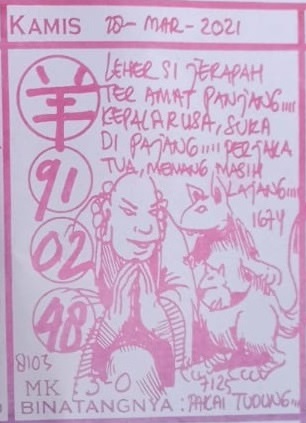 KAMIS 28- MAR - 2021
羊
LEHER SI JERAPAH
TER AMAT PANJANG....
KEPALA RUSA, SUKA
DI PAJANG.... PERJAKA
TUA, MEMANG MASIH
LAJANG....
91
1674
02
48
8103
MK 3-0
7125
BINATANGNYA : PAKAI TUDUNG...